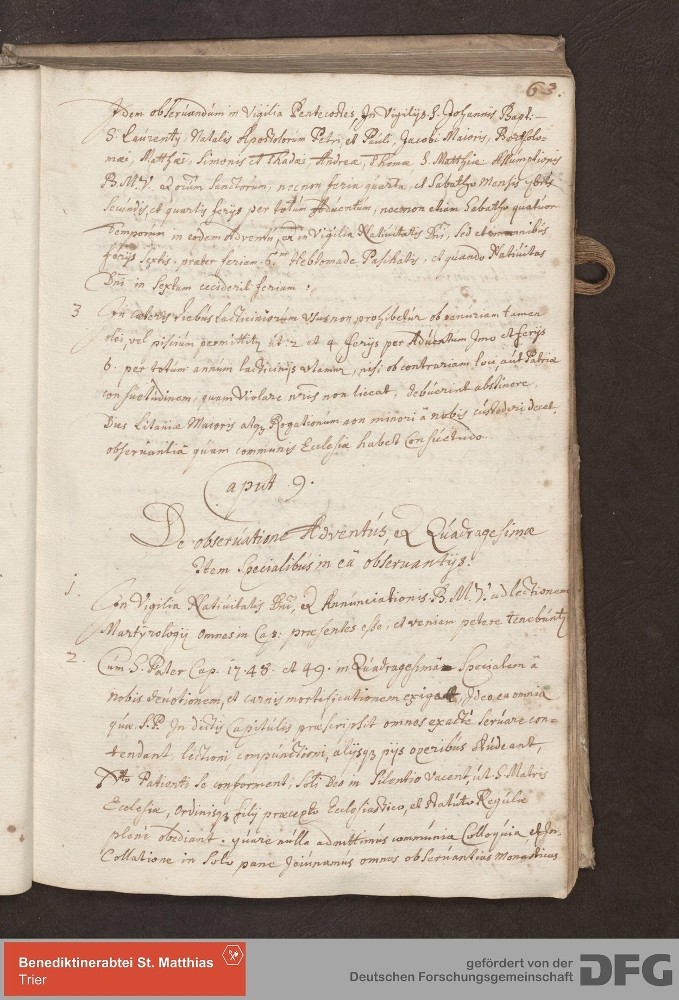 63.
Idem observandum in Vigilia Pentecostes, In Vigilijs S. Johannis Bapt.
S. Laurentij, Natalis Apostolorum Petri, et Pauli, Jacobi Maioris, Bartholo-
mæi, Matthæi, Simonis et Thadæi, Andreæ, Thomæ S. Matthiæ Assumptionis
B. M. V. et oium Sanctorum, necnon feria quarta, et Sabatho Mensis 7bris
Secundis, et quartis ferijs per totum Adventum, necnon etiam Sabatho quatuor
Temporum in eodem Adventu, et in Vigilia Nativitatis Dni, sed et omnibus
ferijs sextis, præter feriam 6am Hebdomadæ Paschalis, et quando Nativitas
Dni in Sextam ceciderit feriam.
3 In cæteris diebus Lacticiniorum Usus non prohibetur ob penuriam tamen
olei, vel piscium permittitur ut 2 et 4 ferijs per Adventum Imo et ferijs
6. per totum annum lacticinijs utamur, nisi ob contrariam loci, aut Patriæ
consuetudinem, quam violare nris non liceat, debuerint abstinere.
Dies Litaniæ Maioris atq3 Rogationum non minori a nobis custodiri decet,
observantiâ quam communis Ecclesiæ habet Consuetudo.
Caput 9.
De observatione Adventûs, et Quadragesimæ
Item Specialibus in eâ observantijs.
1. In Vigilia Nativitatis Dni, et Annunciationis B. M. V. ad lectionem
Martyrologij omnes in Cap. præsentes esse, et veniam petere tenebuntur
2. Cum S. Pater Cap. 17. 48. et 49. in Quadragesima Specialem â
nobis devotionem, et carnis mortificationem exigat, Ideo ea omnia
quæ S. P. In dictis Capitulis præscripsit omnes exactè servare con=
tendant, lectioni, compunctioni, alijsq3 pijs operibus studeant,
Xto Patienti se conforment, Soli Deo in silentio vacent, ut S. Matris
Ecclesiæ, Ordinisq3 filij præcepto Ecclesiastico, et statuto Regulæ
planè obediant. quare nulla admittimus communia Colloquia, et In
Collatione in Solo pane Jeiunamus omnes observantias Monasticas
Benediktinerabtei St. Matthias
Trier
gefördert von der
Deutschen Forschungsgemeinschaft
DFG